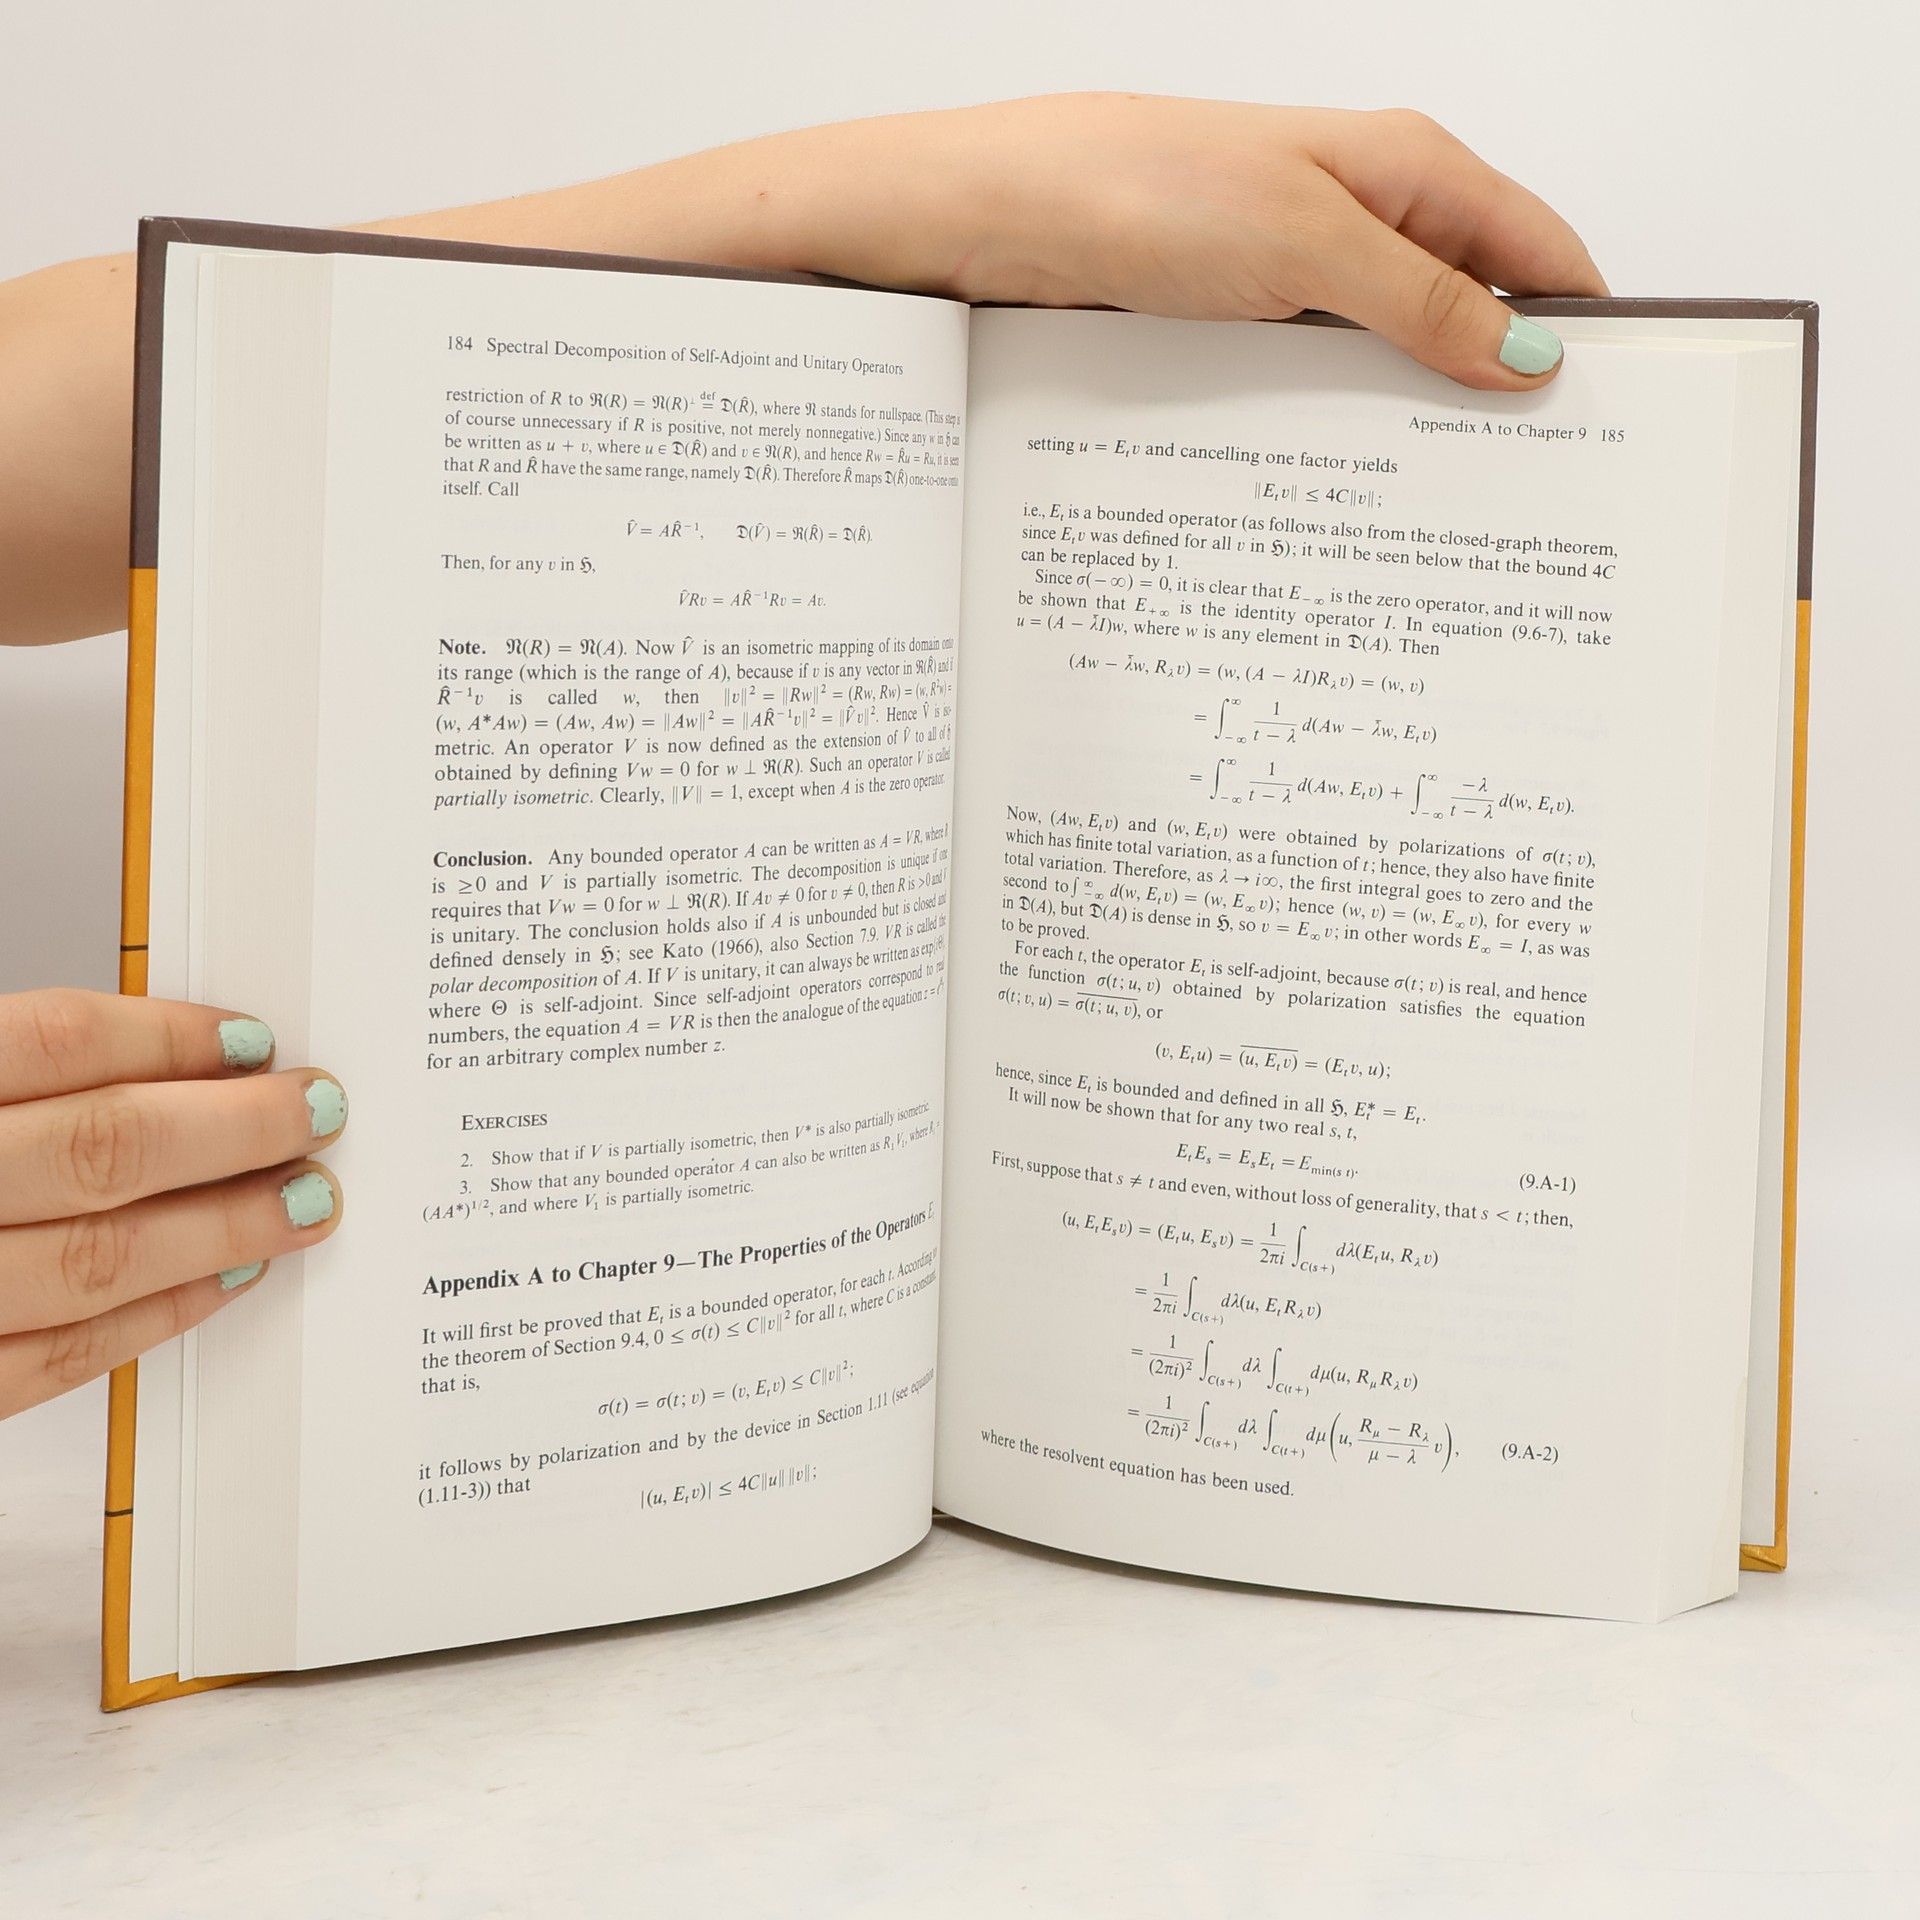 184 Spectral Decomposition of Self-Adjoint and Unitary Operators
restriction of R to ℜ(R) = 𝔑(R)⊥ def= 𝔇(R̂), where 𝔑 stands for nullspace. (This step is
of course unnecessary if R is positive, not merely nonnegative.) Since any w in ℌ can
be written as u + v, where u ∈ 𝔇(R̂) and v ∈ 𝔑(R), and hence Rw = R̂u = Ru, it is seen
that R and R̂ have the same range, namely 𝔇(R̂). Therefore R̂ maps 𝔇(R̂) one-to-one onto
itself. Call
V̂ = AR̂⁻¹, 𝔇(V̂) = ℜ(R̂) = 𝔇(R̂).
Then, for any v in ℌ,
V̂Rv = AR̂⁻¹Rv = Av.
Note. 𝔑(R) = 𝔑(A). Now V̂ is an isometric mapping of its domain onto
its range (which is the range of A), because if v is any vector in ℜ(R̂) and if
R̂⁻¹v is called w, then ‖v‖² = ‖Rw‖² = (Rw, Rw) = (w, R²w) =
(w, A*Aw) = (Aw, Aw) = ‖Aw‖² = ‖AR̂⁻¹v‖² = ‖V̂v‖². Hence V̂ is iso-
metric. An operator V is now defined as the extension of V̂ to all of ℌ
obtained by defining Vw = 0 for w ⊥ ℜ(R). Such an operator V is called
partially isometric. Clearly, ‖V‖ = 1, except when A is the zero operator.
Conclusion. Any bounded operator A can be written as A = VR, where R
is ≥0 and V is partially isometric. The decomposition is unique if one
requires that Vw = 0 for w ⊥ ℜ(R). If Av ≠ 0 for v ≠ 0, then R is >0 and V
is unitary. The conclusion holds also if A is unbounded but is closed and
defined densely in ℌ; see Kato (1966), also Section 7.9. VR is called the
polar decomposition of A. If V is unitary, it can always be written as exp(iΘ),
where Θ is self-adjoint. Since self-adjoint operators correspond to real
numbers, the equation A = VR is then the analogue of the equation z =
for an arbitrary complex number z.
EXERCISES
2. Show that if V is partially isometric, then V* is also partially isometric.
3. Show that any bounded operator A can also be written as R₁V₁, where R₁ =
(AA*)¹ᐟ², and where V₁ is partially isometric.
Appendix A to Chapter 9—The Properties of the Operators Eₜ
It will first be proved that Eₜ is a bounded operator, for each t. According to
the theorem of Section 9.4, 0 ≤ σ(t) ≤ C‖v‖² for all t, where C is a constant,
that is,
σ(t) = σ(t; v) = (v, Eₜv) ≤ C‖v‖²;
it follows by polarization and by the device in Section 1.11 (see equation
(1.11-3)) that
|(u, Eₜv)| ≤ 4C‖u‖ ‖v‖;
Appendix A to Chapter 9 185
setting u = Eₜv and cancelling one factor yields
‖Eₜv‖ ≤ 4C‖v‖;
i.e., Eₜ is a bounded operator (as follows also from the closed-graph theorem,
since Eₜv was defined for all v in ℌ); it will be seen below that the bound 4C
can be replaced by 1.
Since σ(−∞) = 0, it is clear that E₋∞ is the zero operator, and it will now
be shown that E₊∞ is the identity operator I. In equation (9.6-7), take
u = (A − λ̄I)w, where w is any element in 𝔇(A). Then
(Aw − λ̄w, R_λ v) = (w, (A − λI)R_λ v) = (w, v)
= ∫_{−∞}^{∞} 1/(t − λ) d(Aw − λ̄w, Eₜv)
= ∫_{−∞}^{∞} 1/(t − λ) d(Aw, Eₜv) + ∫_{−∞}^{∞} −λ/(t − λ) d(w, Eₜv).
Now, (Aw, Eₜv) and (w, Eₜv) were obtained by polarizations of σ(t; v),
which has finite total variation, as a function of t; hence, they also have finite
total variation. Therefore, as λ → i∞, the first integral goes to zero and the
second to ∫_{−∞}^{∞} d(w, Eₜv) = (w, E∞v); hence (w, v) = (w, E∞v), for every w
in 𝔇(A), but 𝔇(A) is dense in ℌ, so v = E∞v; in other words E∞ = I, as was
to be proved.
For each t, the operator Eₜ is self-adjoint, because σ(t; v) is real, and hence
the function σ(t; u, v) obtained by polarization satisfies the equation
σ(t; v, u) = \overline{σ(t; u, v)}, or
(v, Eₜu) = \overline{(u, Eₜv)} = (Eₜv, u);
hence, since Eₜ is bounded and defined in all ℌ, Eₜ* = Eₜ.
It will now be shown that for any two real s, t,
EₜEₛ = EₛEₜ = E_{min(s t)}. (9.A-1)
First, suppose that s ≠ t and even, without loss of generality, that s < t; then,
(u, EₜEₛv) = (Eₜu, Eₛv) = 1/(2πi) ∫_{C(s+)} dλ(Eₜu, R_λ v)
= 1/(2πi) ∫_{C(s+)} dλ(u, EₜR_λ v)
= 1/(2πi)² ∫_{C(s+)} dλ ∫_{C(t+)} dμ(u, R_μ R_λ v)
= 1/(2πi)² ∫_{C(s+)} dλ ∫_{C(t+)} dμ(u, (R_μ − R_λ)/(μ − λ) v), (9.A-2)
where the resolvent equation has been used.